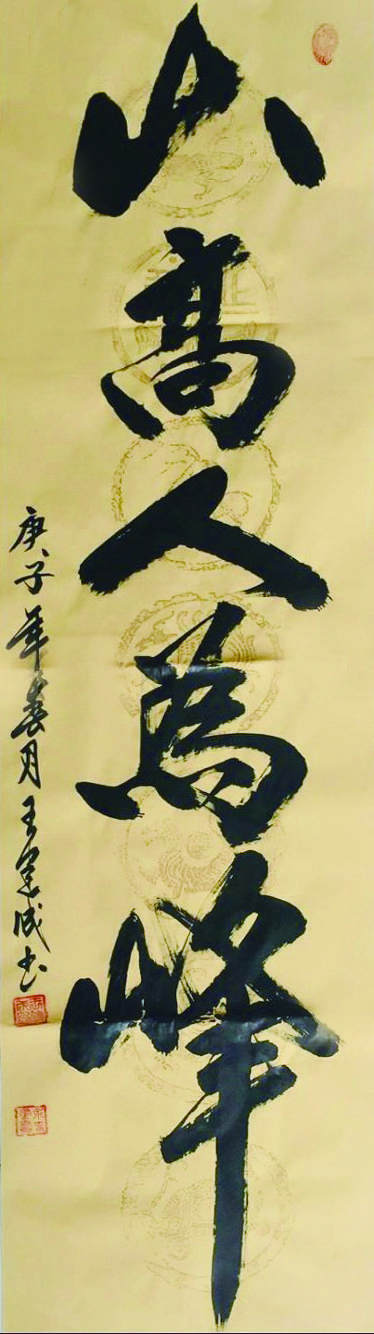 山高人為峰
庚子年春月王建成书